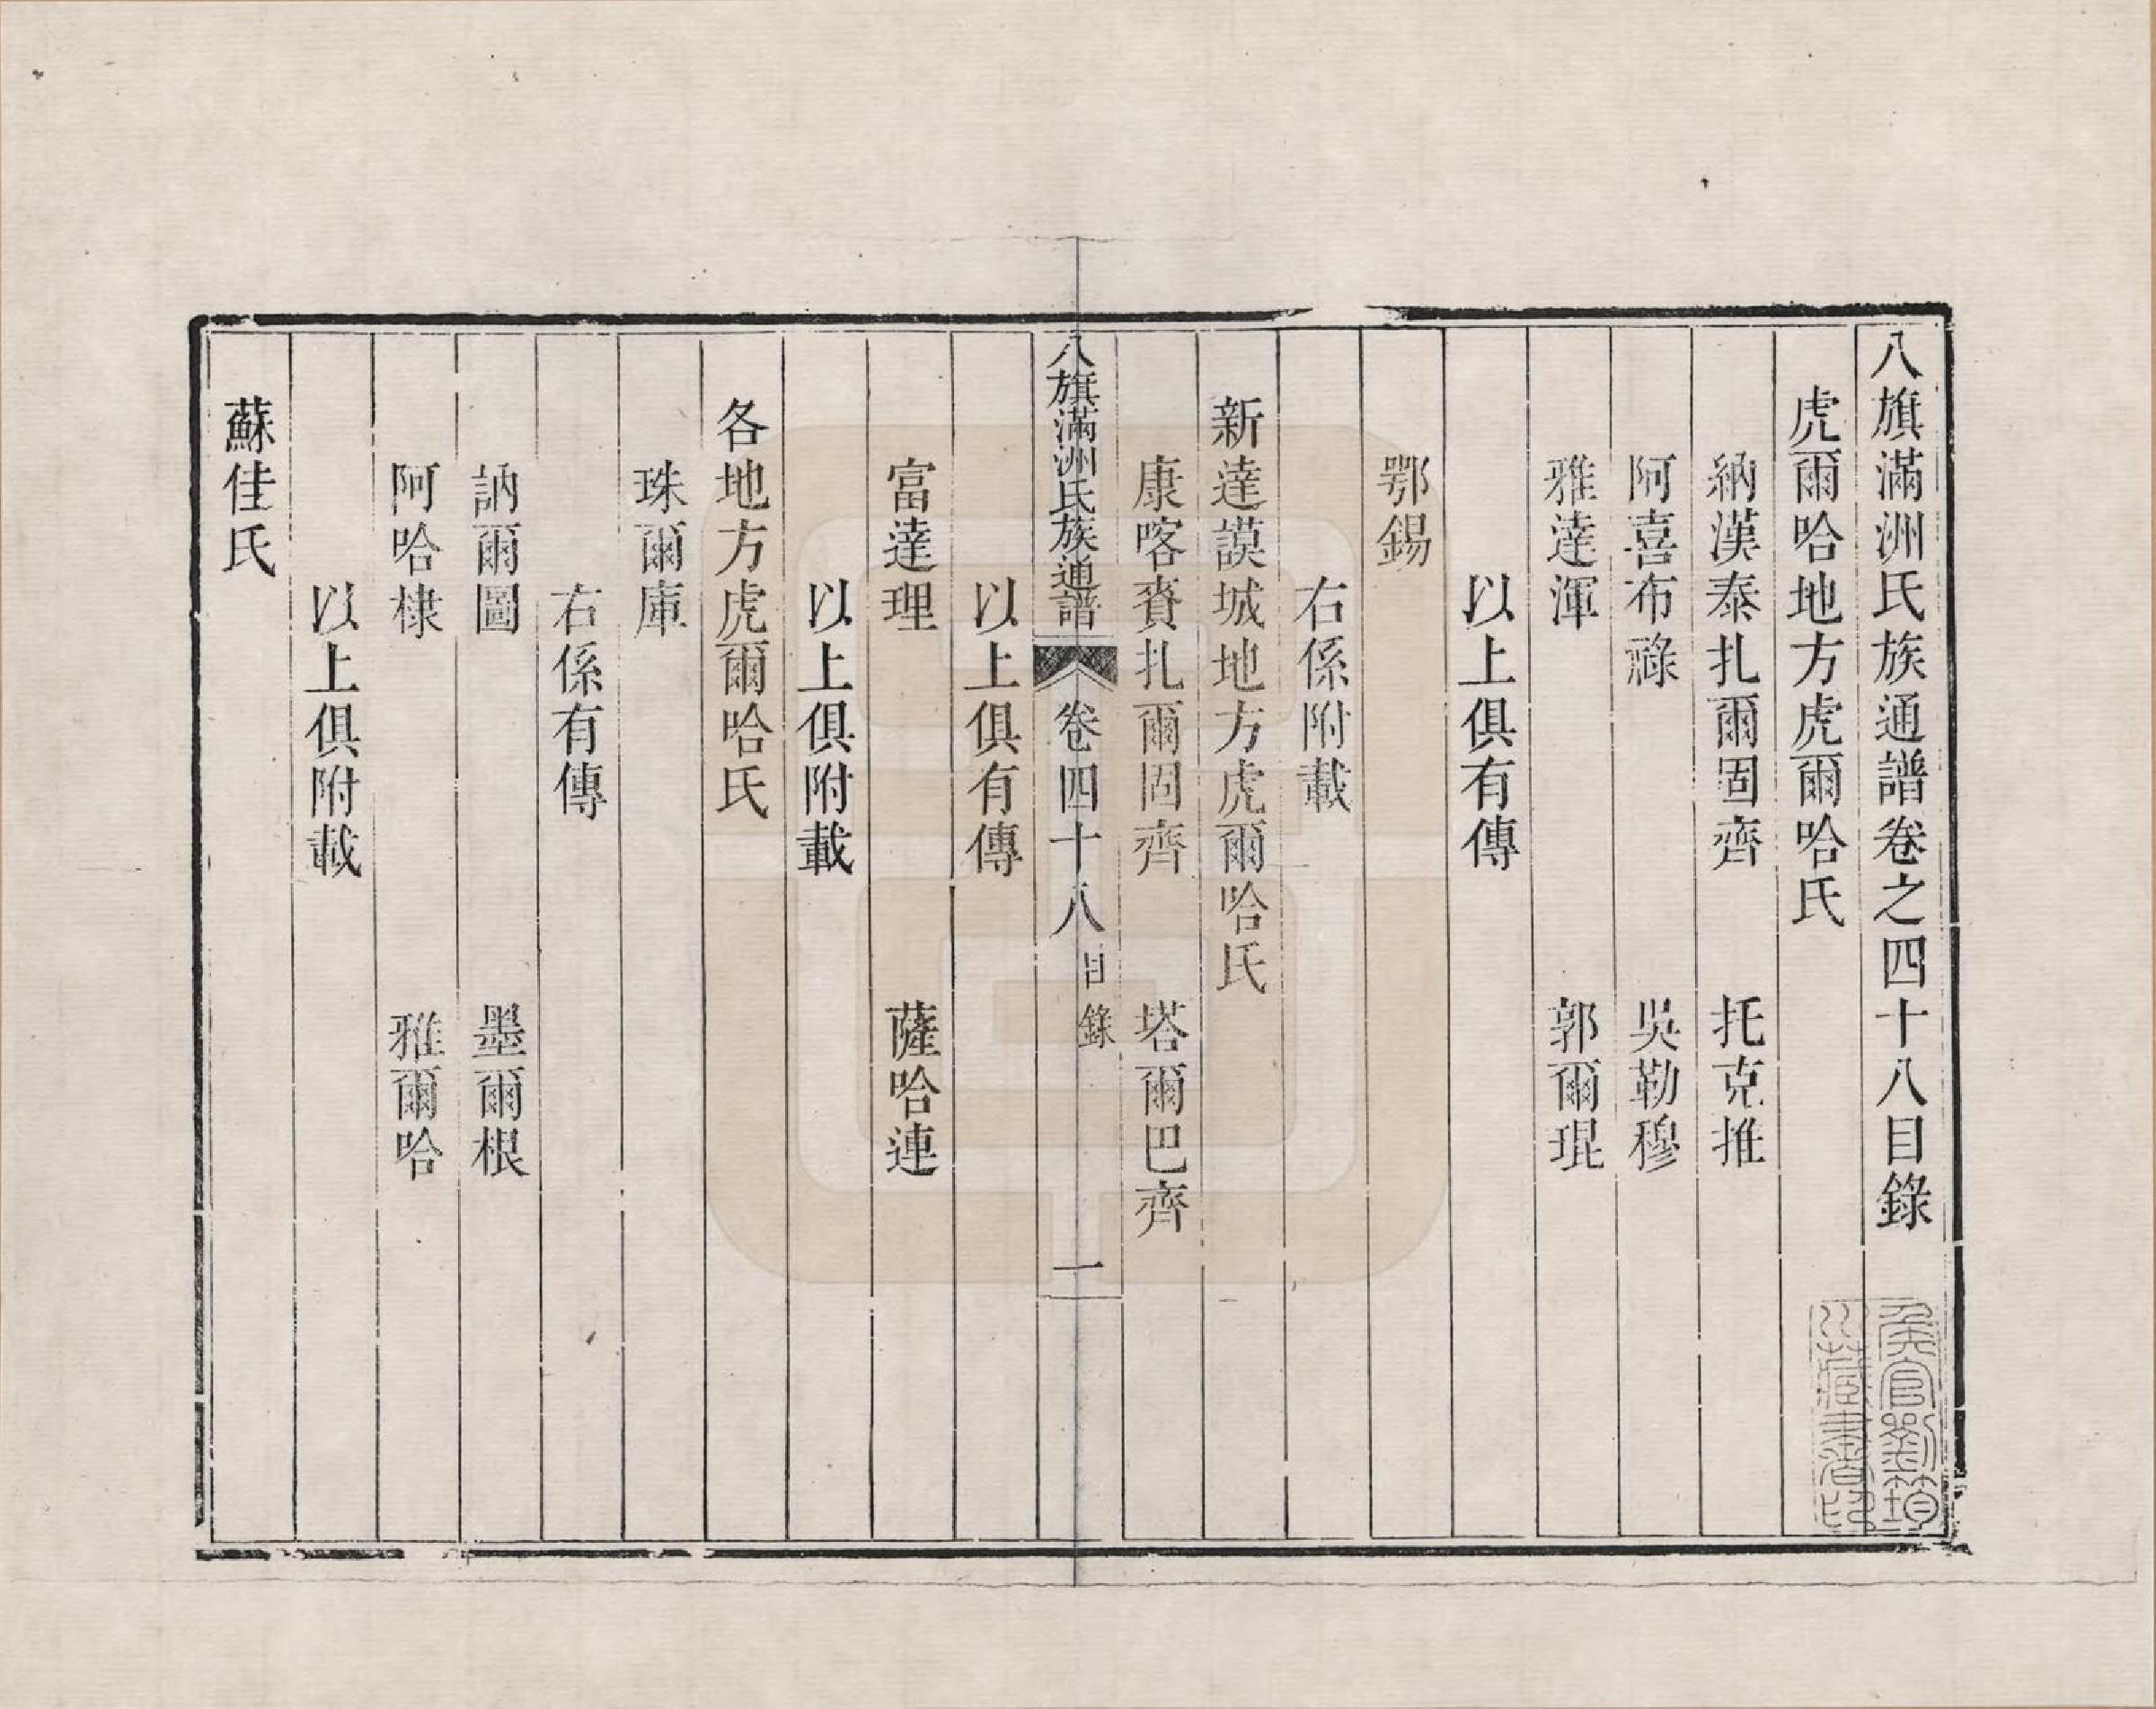 八旗滿洲氏族通譜卷之四十八目錄
虎爾哈地方虎爾哈氏
納漢泰扎爾固齊　托克推
阿喜布祿　吳勒穆
雅達渾　郭爾琨
以上俱有傳
鄂錫
右係附載
新達謨城地方虎爾哈氏
康喀賚扎爾固齊　塔爾巴齊
八旗滿洲氏族通譜　卷四十八　目錄　一
以上俱有傳
富達理　薩哈連
以上俱附載
各地方虎爾哈氏
珠爾庫
右係有傳
訥爾圖　墨爾根
阿哈棣　雅爾哈
以上俱附載
蘇佳氏